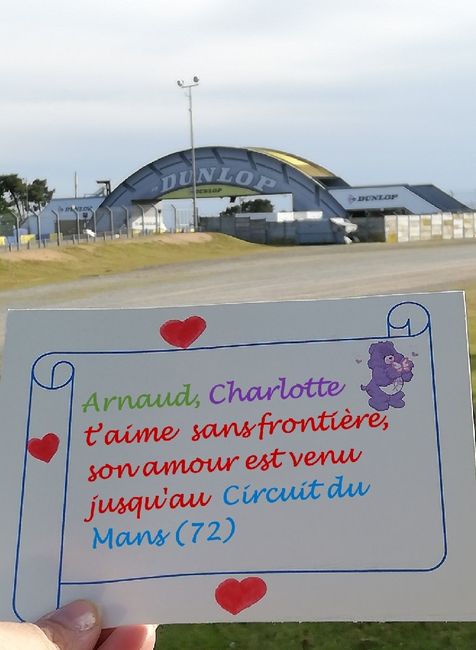 DUNLOP
DUNLOP
DUNLOP
Arnaud, Charlotte
t'aime sans frontière,
son amour est venu
jusqu'au Circuit du
Mans (72)